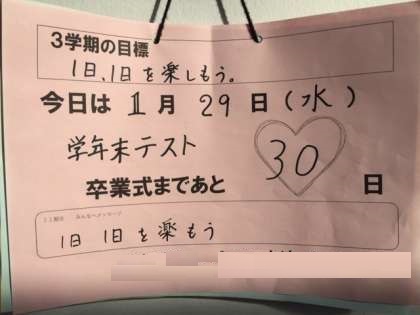 3学期の目標
1日、1日を楽しもう。
今日は1月29日(水)
学年末テスト
30
卒業式まであと 日
1日 1日を楽もう